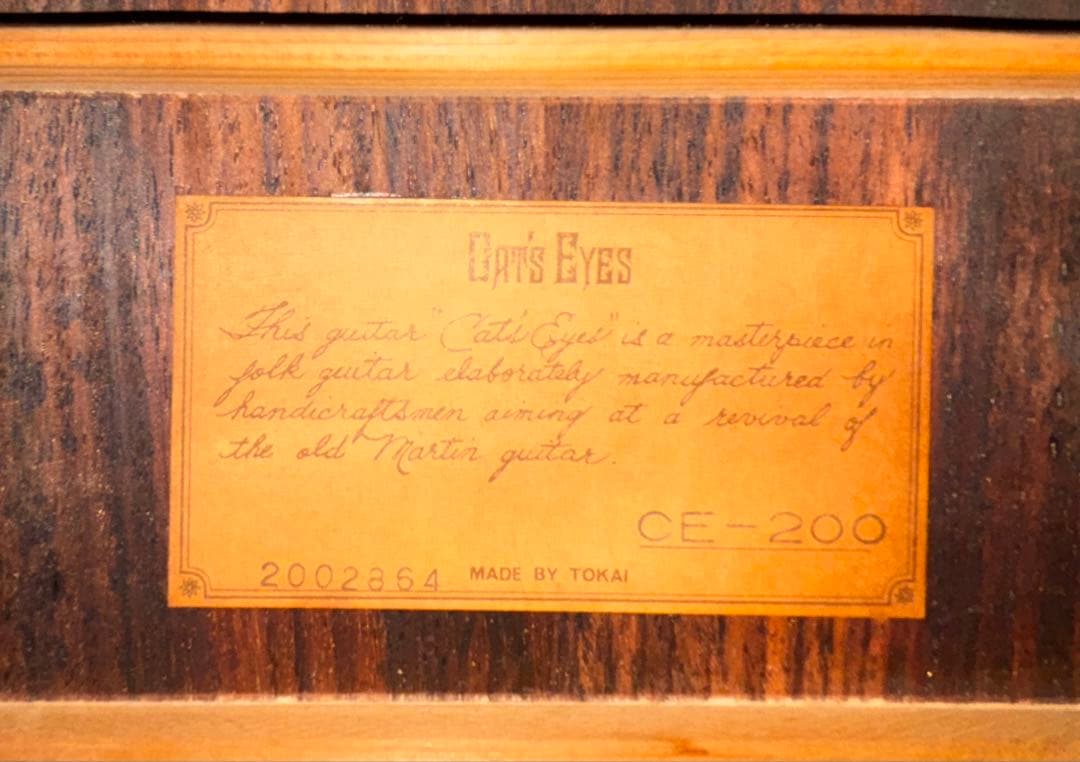 CAT'S EYES
This guitar "Cat's Eyes" is a masterpiece in
folk guitar elaborately manufactured by
handicraftsmen aiming at a revival of
the old Martin guitar.
CE-200
2002864 MADE BY TOKAI